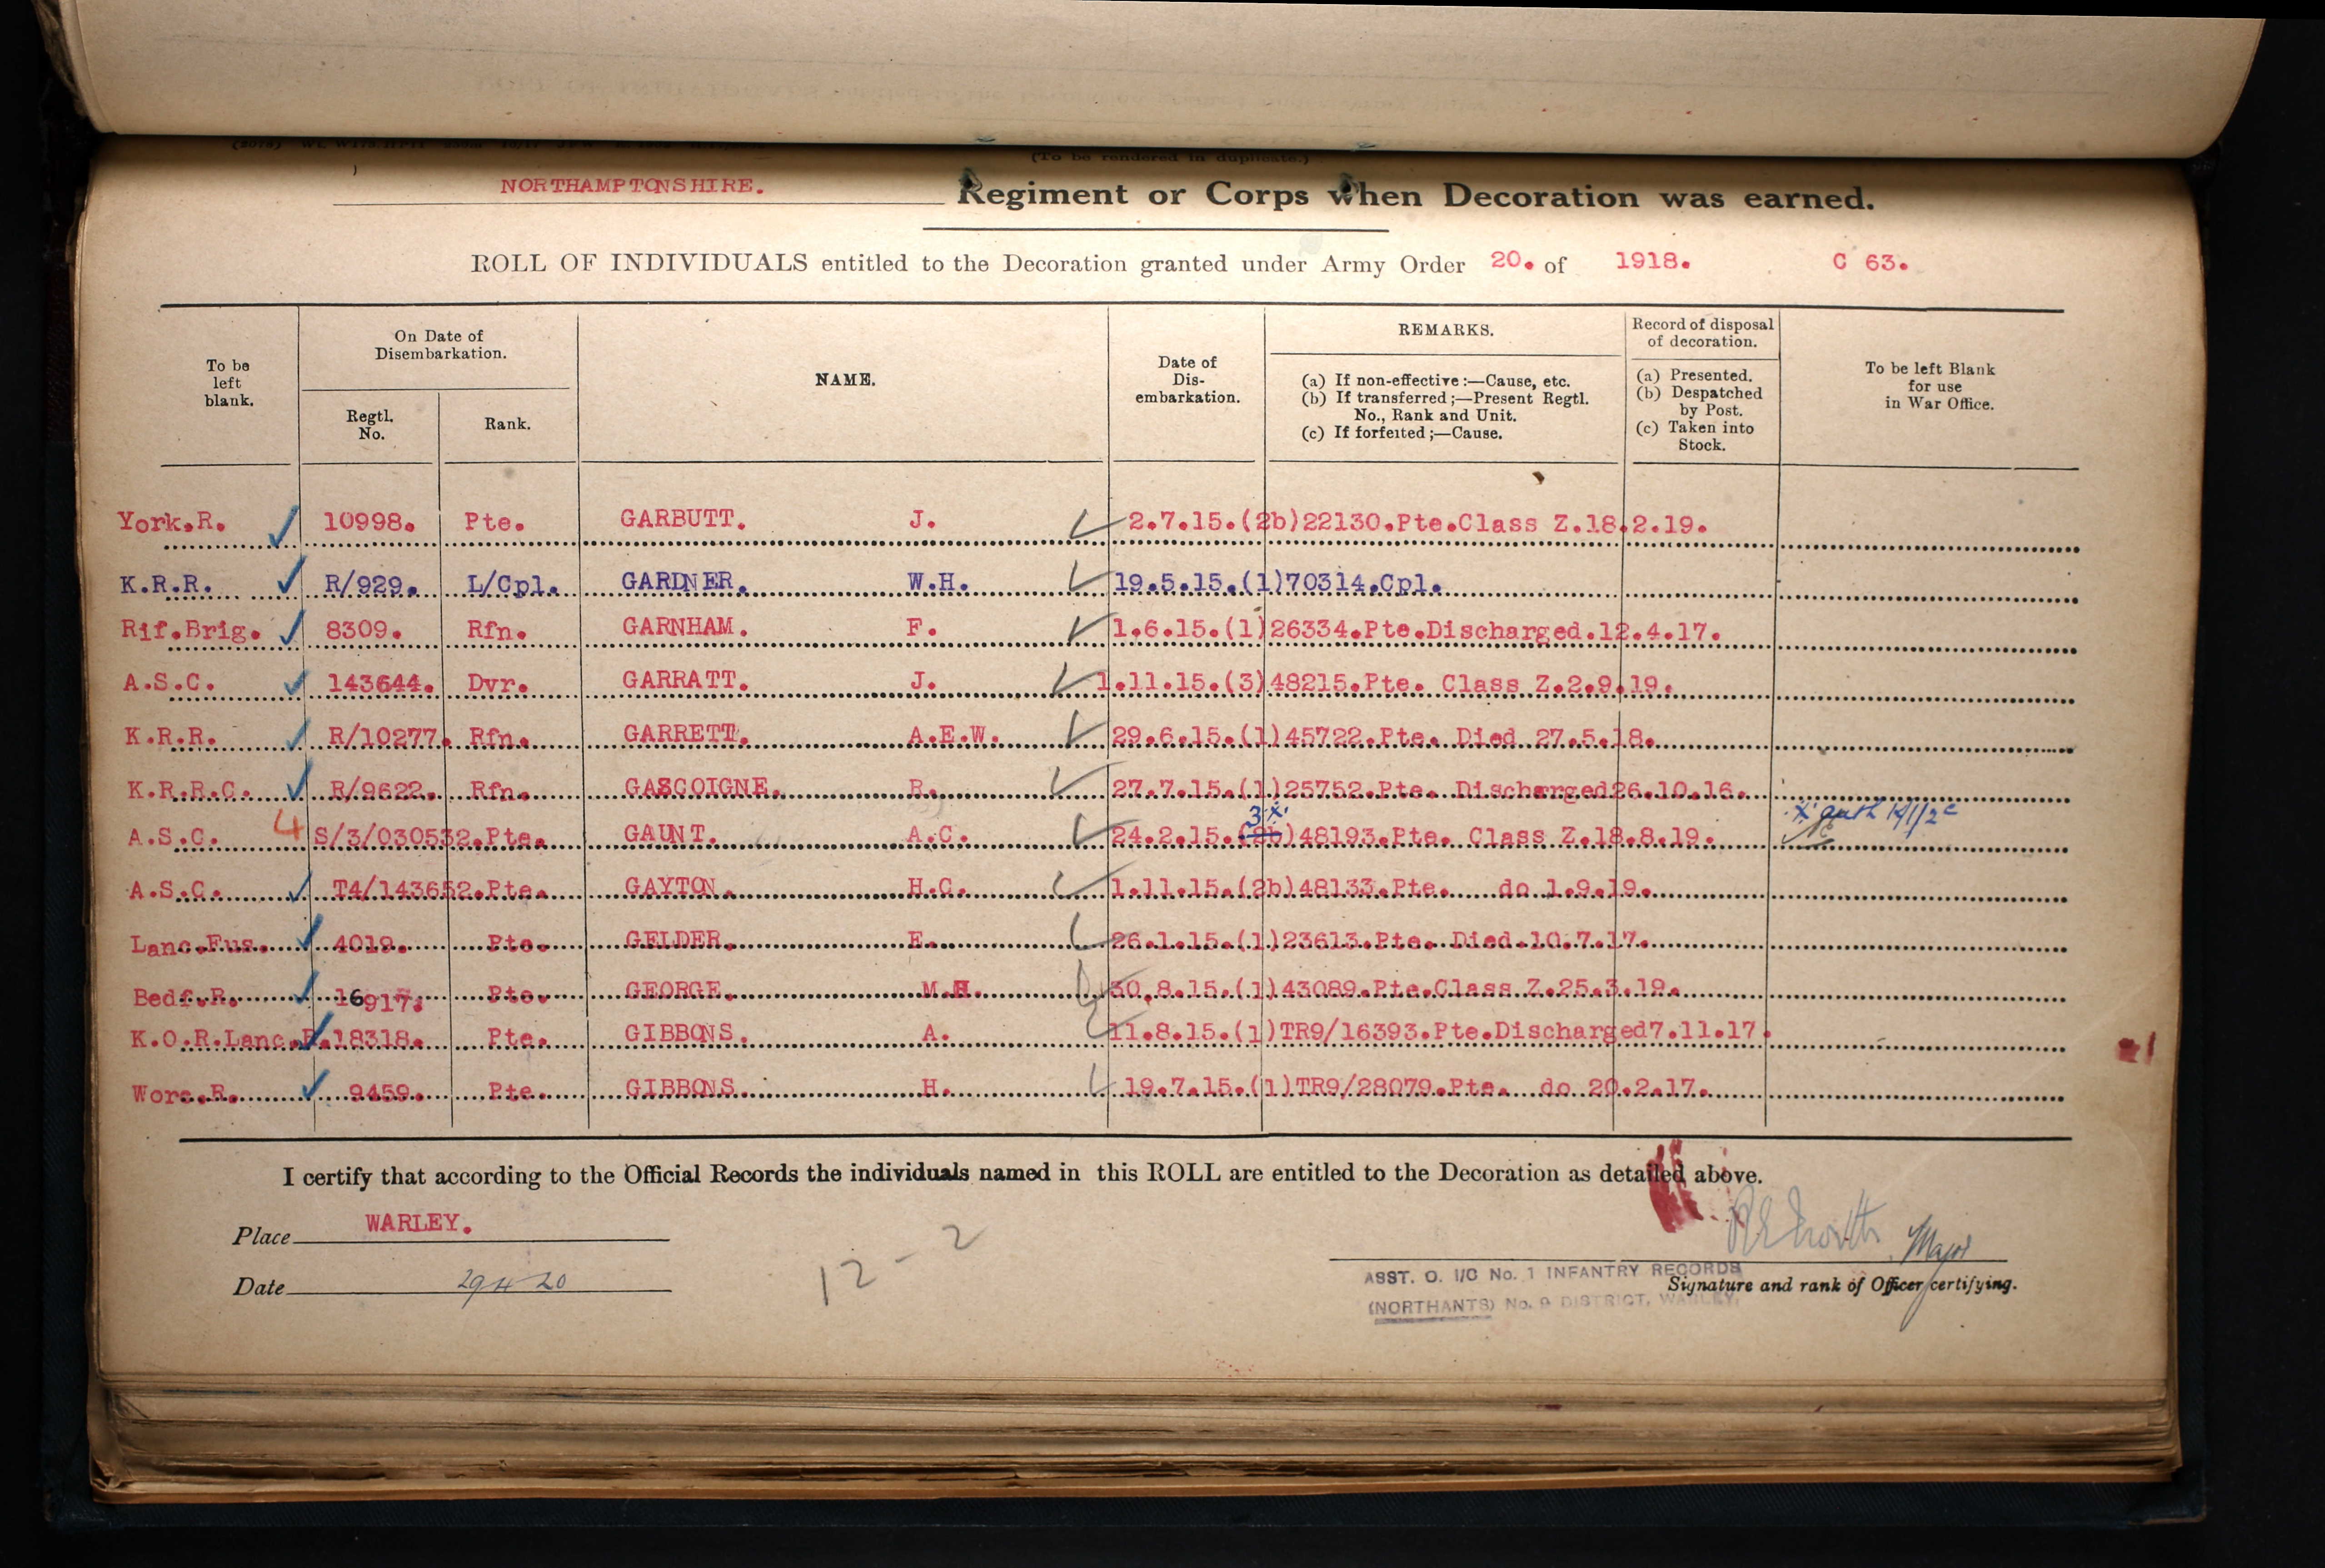 (To be rendered in duplicate.)
NORTHAMPTONSHIRE. Regiment or Corps when Decoration was earned.
ROLL OF INDIVIDUALS entitled to the Decoration granted under Army Order 20. of 1918. C 63.
To be left blank.
On Date of Disembarkation.
Regtl. No.
Rank.
NAME.
Date of Dis-embarkation.
REMARKS.
(a) If non-effective:—Cause, etc.
(b) If transferred;—Present Regtl. No., Rank and Unit.
(c) If forfeited;—Cause.
Record of disposal of decoration.
(a) Presented.
(b) Despatched by Post.
(c) Taken into Stock.
To be left Blank for use in War Office.
York.R. 10998. Pte. GARBUTT. J. 2.7.15.(2b)22130.Pte.Class Z.18.2.19.
K.R.R. R/929. L/Cpl. GARDNER. W.H. 19.5.15.(1)70314.Cpl.
Rif.Brig. 8309. Rfn. GARNHAM. F. 1.6.15.(1)26334.Pte.Discharged.12.4.17.
A.S.C. 143644. Dvr. GARRATT. J. 1.11.15.(3)48215.Pte. Class Z.2.9.19.
K.R.R. R/10277. Rfn. GARRETT. A.E.W. 29.6.15.(1)45722.Pte. Died 27.5.18.
K.R.R.C. R/9622. Rfn. GASCOIGNE. R. 27.7.15.(1)25752.Pte. Discharged26.10.16.
3 x x auth
A.S.C. 4 S/3/030532.Pte. GAUNT. A.C. 24.2.15.(2b)48193.Pte. Class Z.18.8.19.
A.S.C. T4/143652.Pte. GAYTON. H.C. 1.11.15.(2b)48133.Pte. do 1.9.19.
Lanc.Fus. 4019. Pte. GELDER. E. 26.1.15.(1)23613.Pte. Died.10.7.17.
Bedf.R. 16917. Pte. GEORGE. M.H. 30.8.15.(1)43089.Pte.Class Z.25.3.19.
K.O.R.Lanc.R.18318. Pte. GIBBONS. A. 11.8.15.(1)TR9/16393.Pte.Discharged7.11.17.
Worc.R. 9459. Pte. GIBBONS. H. 19.7.15.(1)TR9/28079.Pte. do 20.2.17.
I certify that according to the Official Records the individuals named in this ROLL are entitled to the Decoration as detailed above.
Place WARLEY.
Major
Date 29 4 20
12-2
ASST. O. I/C No. 1 INFANTRY RECORDS
Signature and rank of Officer certifying.
(NORTHANTS) No. 9 DISTRICT, WARLEY.